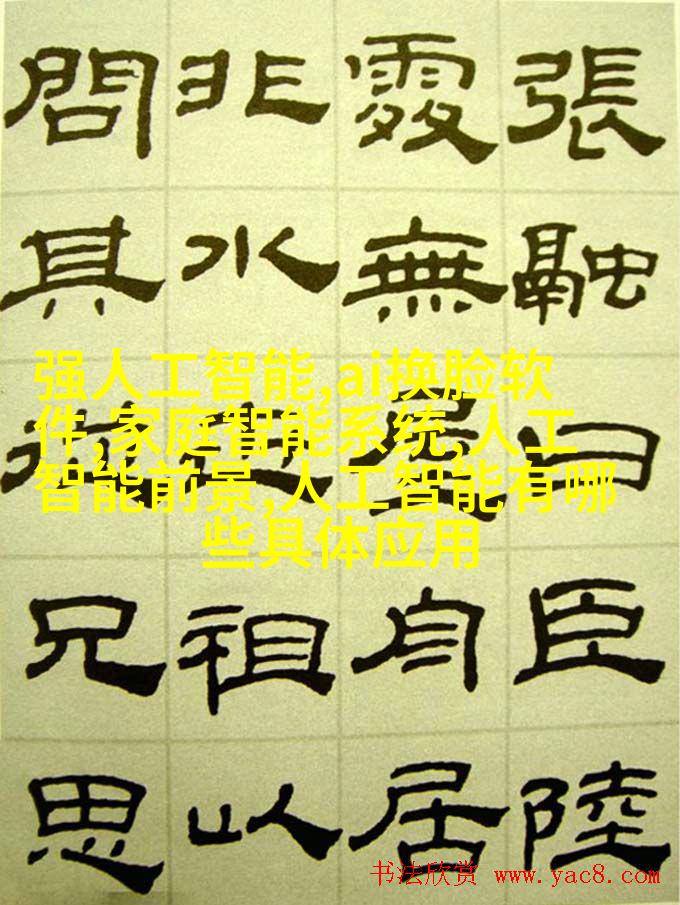 張融曰臣陸
處無屋舟居
非水祖以
問其兄思
强人工智能,ai换脸软
件,家庭智能系统,人工
智能前景,人工智能有哪
些具体应用
书法欣赏 www.yac8.com